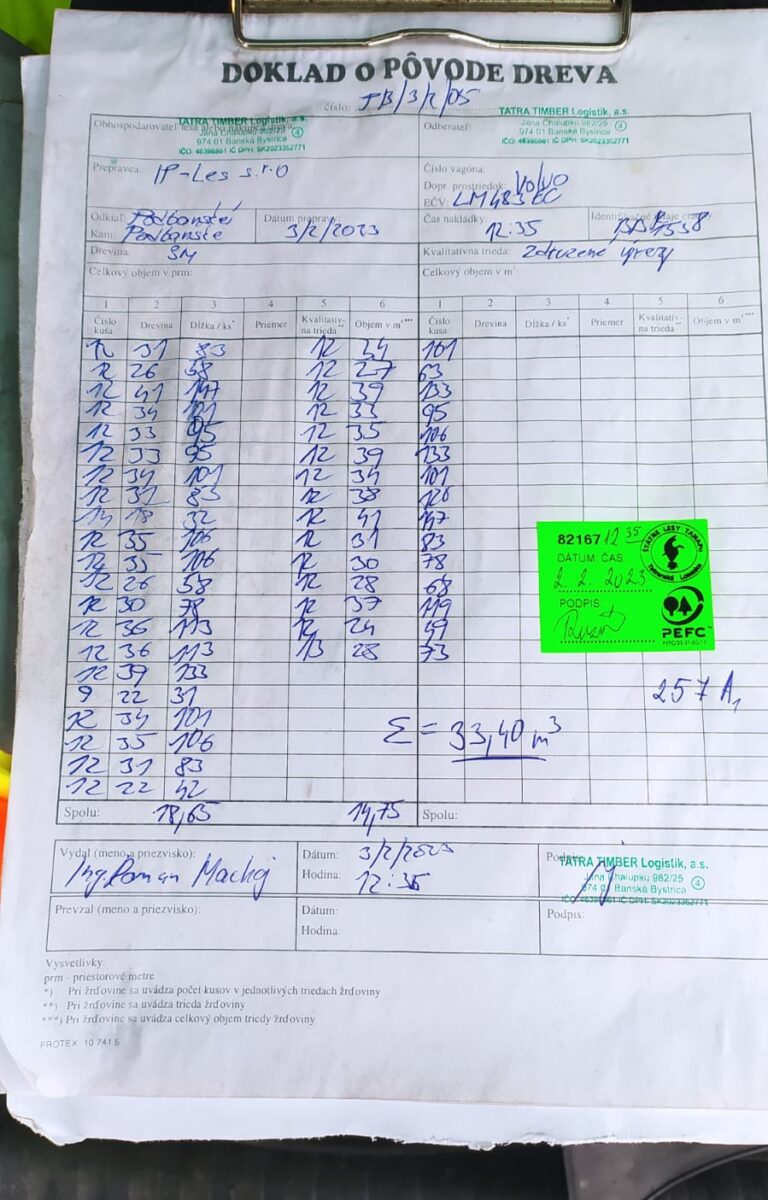 DOKLAD O PÔVODE DREVA
číslo: TB/3/2/05
Obhospodarovateľ lesa alebo
TATRA TIMBER Logistik, a.s.
Jána Chalupku 982/25
974 01 Banská Bystrica
④
Odberateľ:
TATRA TIMBER Logistik, a.s.
Jána Chalupku 982/25
974 01 Banská Bystrica
④
Prepravca: IP-Les s.r.o
Číslo vagóna:
Dopr. prostriedok: VOLVO
EČV: LM483EC
Odkiaľ: Podbanské
Kam: Podbanské
Dátum prepravy: 3/2/2023
Čas nakládky: 12:35
Drevina: SM
Kvalitatívna trieda: Združené výrezy
Celkový objem v prm:
Celkový objem v m³:
1 2 3 4 5 6 1 2 3 4 5 6
Číslo kusa Drevina Dĺžka / ks* Priemer Kvalitatív- na trieda** Objem v m³*** Číslo kusa Drevina Dĺžka / ks* Priemer Kvalitatív- na trieda** Objem v m³***
12 31 83 12 34 101
12 26 58 12 27 63
12 41 147 12 39 133
12 34 101 12 33 95
12 33 95 12 35 106
12 33 95 12 39 133
12 34 101 12 34 101
12 31 83 12 38 126
18 32 12 41 147
12 35 106 12 31 83
12 35 106 12 30 78
12 26 58 12 28 68
12 30 78 12 37 119
12 36 113 12 24 49
12 36 113 13 28 73
12 39 133
9 22 31
12 34 101
12 35 106
12 31 83
12 22 42
82167 12 35
DÁTUM, ČAS
2. 2. 2023
PODPIS:
ŠTÁTNE LESY TANAPU
Tatranská Lomnica
PEFC™
257 A1
Σ = 33,40 m³
Spolu: 18,65 14,75 Spolu:
Vydal (meno a priezvisko):
Ing. Roman Machaj
Dátum: 3/2/2023
Hodina: 12:35
TATRA TIMBER Logistik, a.s.
Jána Chalupku 982/25
974 01 Banská Bystrica
④
Prevzal (meno a priezvisko):
Dátum:
Hodina:
Podpis:
Vysvetlivky:
prm - priestorové metre
*) Pri žrďovine sa uvádza počet kusov v jednotlivých triedach žrďoviny
**) Pri žrďovine sa uvádza trieda žrďoviny
***) Pri žrďovine sa uvádza celkový objem triedy žrďoviny
PROTEX 10 741 5